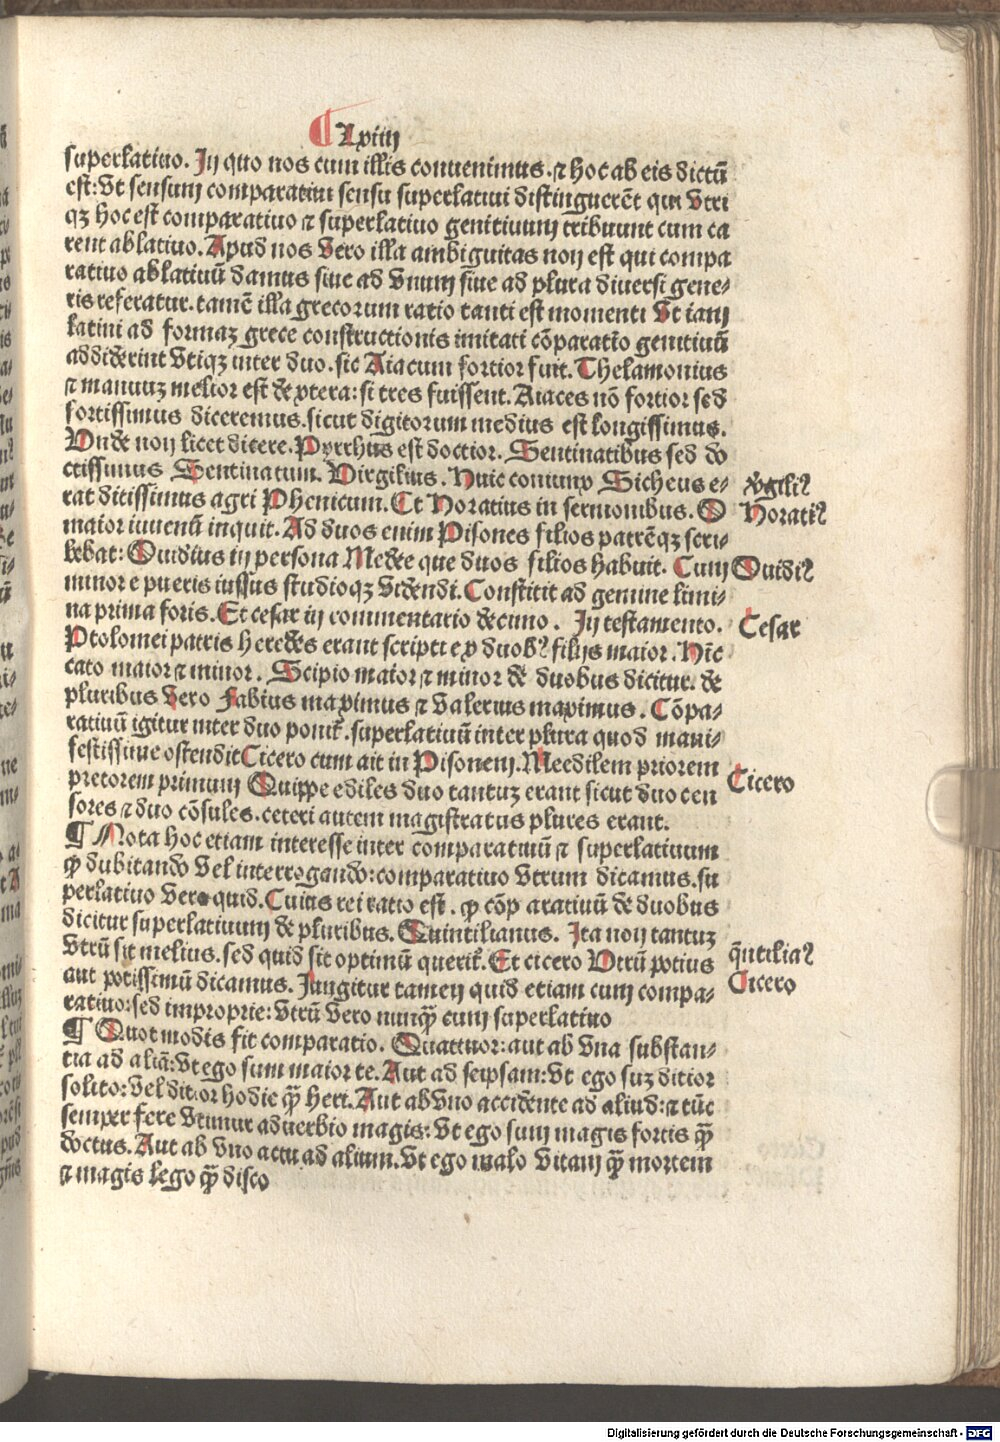 ¶ Lxiiij
superlatiuo. In quo nos cum illis conuenimus. ⁊ hoc ab eis dictũ
est: Vt sensum comparatiui sensu superlatiui distinguerẽt qui vtri
qꝫ hoc est comparatiuo ⁊ superlatiuo genitiuum tribuunt cum ca
rent ablatiuo. Apud nos vero illa ambiguitas non est qui compa
ratiuo ablatiuũ damus siue ad vnum siue ad plura diuersi gene-
ris referatur. tamẽ illa grecorum ratio tanti est momenti vt iam
latini ad formaꝫ grece constructionis imitati cõparatio genitiuũ
addiderint vtiqꝫ inter duo. sic Aiacum fortior fuit. Thelamonius
⁊ manuuꝫ melior est dextera: si tres fuissent. Aiaces nõ fortior sed
fortissimus diceremus. sicut digitorum medius est longissimus.
Vnde non licet dicere. Pyrrhus est doctior. Sentinatibus sed do
ctissimus Sentinatum. Virgilius. Huic coniunx Sicheus e-
rat ditissimus agri Phenicum. Et Horatius in sermonibus. O
maior iuuenũ inquit. Ad duos enim Pisones filios patrẽqꝫ scri-
bebat: Ouidius in persona Medee que duos filios habuit. Cum
minor e pueris iussus studioqꝫ videndi. Constitit ad gemine limi-
na prima foris. Et cesar in commentario decimo. In testamento.
Ptolomei patris heredes erant scripti ex duobꝰ filijs maior. Hĩc
cato maior ⁊ minor. Scipio maior ⁊ minor de duobus dicitur. de
pluribus vero Fabius maximus ⁊ Valerius maximus. Cõpa-
ratiuũ igitur inter duo ponit̃. superlatiuũ inter plura quod mani-
festissime ostendit Cicero cum ait in Pisonem. Me edilem priorem
pretorem primum Quippe ediles duo tantuꝫ erant sicut duo cen
sores ⁊ duo cõsules. ceteri autem magistratus plures erant.
¶ Nota hoc etiam interesse inter comparatiuũ ⁊ superlatiuum
ꝙ dubitando vel interrogando: comparatiuo vtrum dicamus. su
perlatiuo vero quid. Cuius rei ratio est. ꝙ cõp aratiuũ de duobus
dicitur superlatiuum de pluribus. Quintilianus. Ita non tantuꝫ
vtrũ sit melius. sed quid sit optimũ querit̃. Et cicero Vtrũ potius
aut potissimũ dicamus. Iungitur tamen quid etiam cum compa-
ratiuo: sed improprie: vtrũ vero nunq̃ cum superlatiuo
¶ Quot modis fit comparatio. Quattuor: aut ab vna substan-
tia ad aliã: vt ego sum maior te. Aut ad seipsam: vt ego suꝫ ditior
solito: vel ditior hodie q̃ heri. Aut ab vno accidente ad aliud: ⁊ tũc
semper fere vtimur aduerbio magis: vt ego sum magis fortis q̃
doctus. Aut ab vno actu ad alium. vt ego malo vitam q̃ mortem
⁊ magis lego q̃ disco
v̉giliꝰ
Horatiꝰ
Ouidiꝰ
Cesar
Cicero
q̃ntiliaꝰ
Cicero
Digitalisierung gefördert durch die Deutsche Forschungsgemeinschaft - DFG